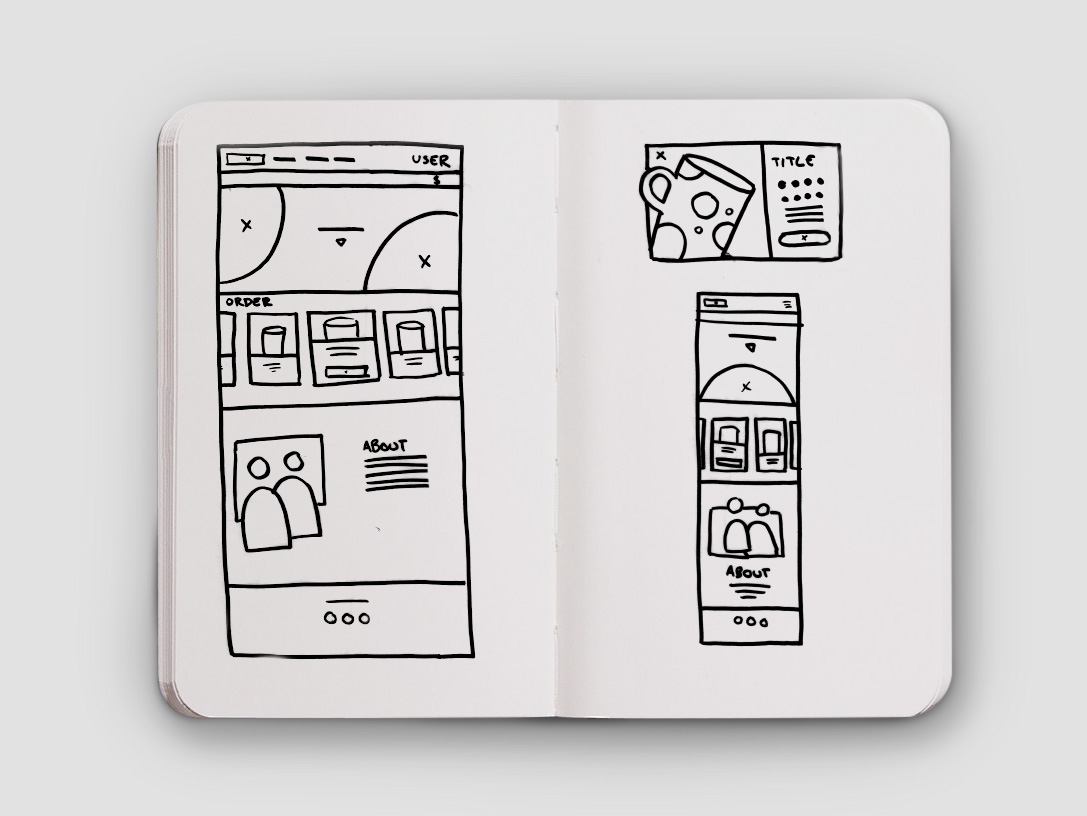 USER
$
X
X
ORDER
ABOUT
X
TITLE
X
X
ABOUT